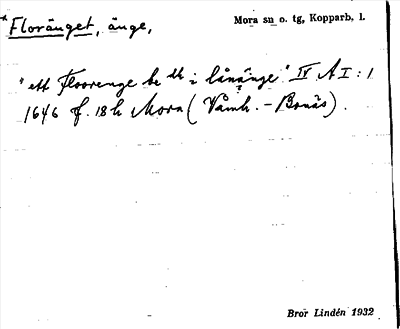 *Floränget, änge,
Mora sn o. tg, Kopparb. l.
"ett Floorenge be th i lånänge" IV A I : 1
1646 f. 18 h Mora (Våmh. - Bonäs).
Bror Lindén 1932